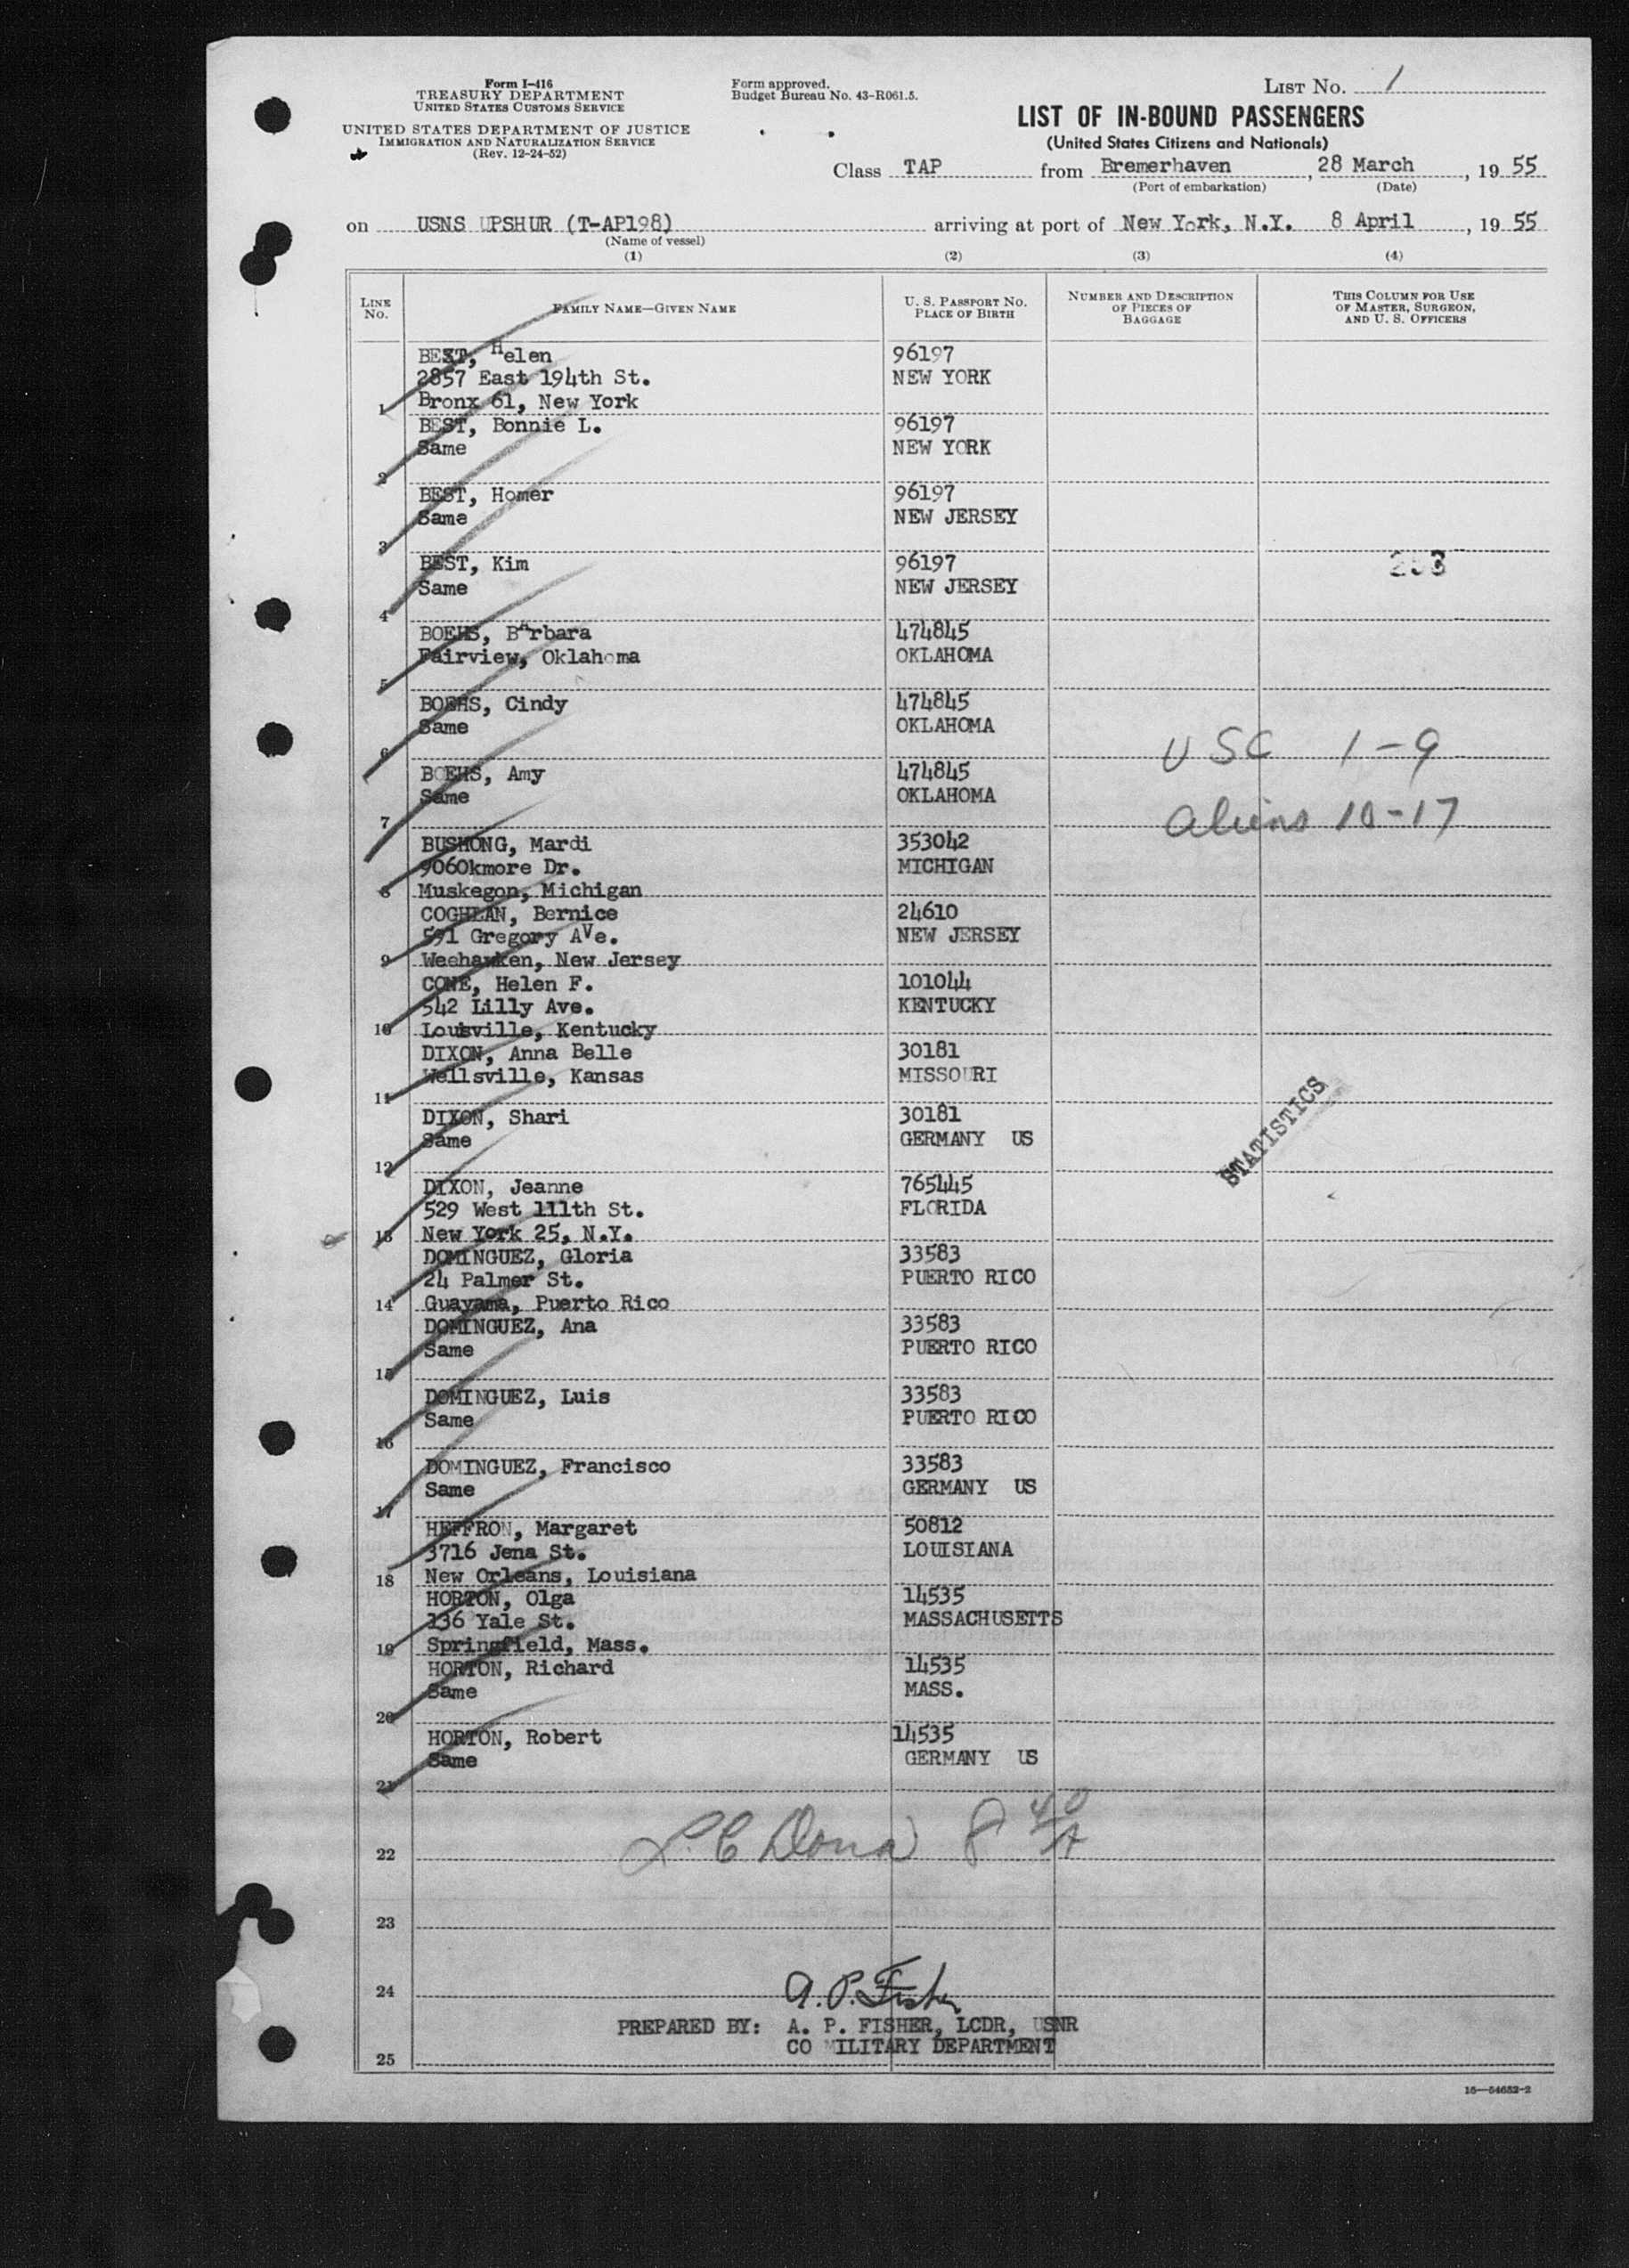 Form I-416
TREASURY DEPARTMENT
UNITED STATES CUSTOMS SERVICE
UNITED STATES DEPARTMENT OF JUSTICE
IMMIGRATION AND NATURALIZATION SERVICE
(Rev. 12-24-52)
Form approved.
Budget Bureau No. 43-R061.5.
LIST NO. 1
LIST OF IN-BOUND PASSENGERS
(United States Citizens and Nationals)
Class TAP from Bremerhaven, 28 March, 19 55
(Port of embarkation) (Date)
on USNS UPSHUR (T-AP198) arriving at port of New York, N.Y. 8 April, 19 55
(Name of vessel)
(1) (2) (3) (4)
LINE NO. FAMILY NAME—GIVEN NAME U. S. PASSPORT NO. PLACE OF BIRTH NUMBER AND DESCRIPTION OF PIECES OF BAGGAGE THIS COLUMN FOR USE OF MASTER, SURGEON, AND U. S. OFFICERS
BEST, Helen 96197
2857 East 194th St. NEW YORK
1 Bronx 61, New York
BEST, Bonnie L. 96197
Same NEW YORK
2
BEST, Homer 96197
Same NEW JERSEY
3
BEST, Kim 96197
Same NEW JERSEY
4
BOEHS, Barbara 474845
Fairview, Oklahoma OKLAHOMA
5
BOEHS, Cindy 474845
Same OKLAHOMA
6 USC 1-9
BOEHS, Amy 474845
Same OKLAHOMA
7 aliens 10-17
BUSHONG, Mardi 353042
9060kmore Dr. MICHIGAN
8 Muskegon, Michigan
COGHLAN, Bernice 24610
591 Gregory AVe. NEW JERSEY
9 Weehawken, New Jersey
CONE, Helen F. 101044
542 Lilly Ave. KENTUCKY
10 Louisville, Kentucky
DIXON, Anna Belle 30181
Wellsville, Kansas MISSOURI
11
DIXON, Shari 30181
Same GERMANY US
12 STATISTICS
DIXON, Jeanne 765445
529 West 111th St. FLORIDA
13 New York 25, N.Y.
DOMINGUEZ, Gloria 33583
24 Palmer St. PUERTO RICO
14 Guayama, Puerto Rico
DOMINGUEZ, Ana 33583
Same PUERTO RICO
15
DOMINGUEZ, Luis 33583
Same PUERTO RICO
16
DOMINGUEZ, Francisco 33583
Same GERMANY US
17
HEFFRON, Margaret 50812
3716 Jena St. LOUISIANA
18 New Orleans, Louisiana
HORTON, Olga 14535
136 Yale St. MASSACHUSETTS
19 Springfield, Mass.
HORTON, Richard 14535
Same MASS.
20
HORTON, Robert 14535
Same GERMANY US
21
22
23
A. P. Fisher
24
PREPARED BY: A. P. FISHER, LCDR, USNR
CO MILITARY DEPARTMENT
25
16—54652-2